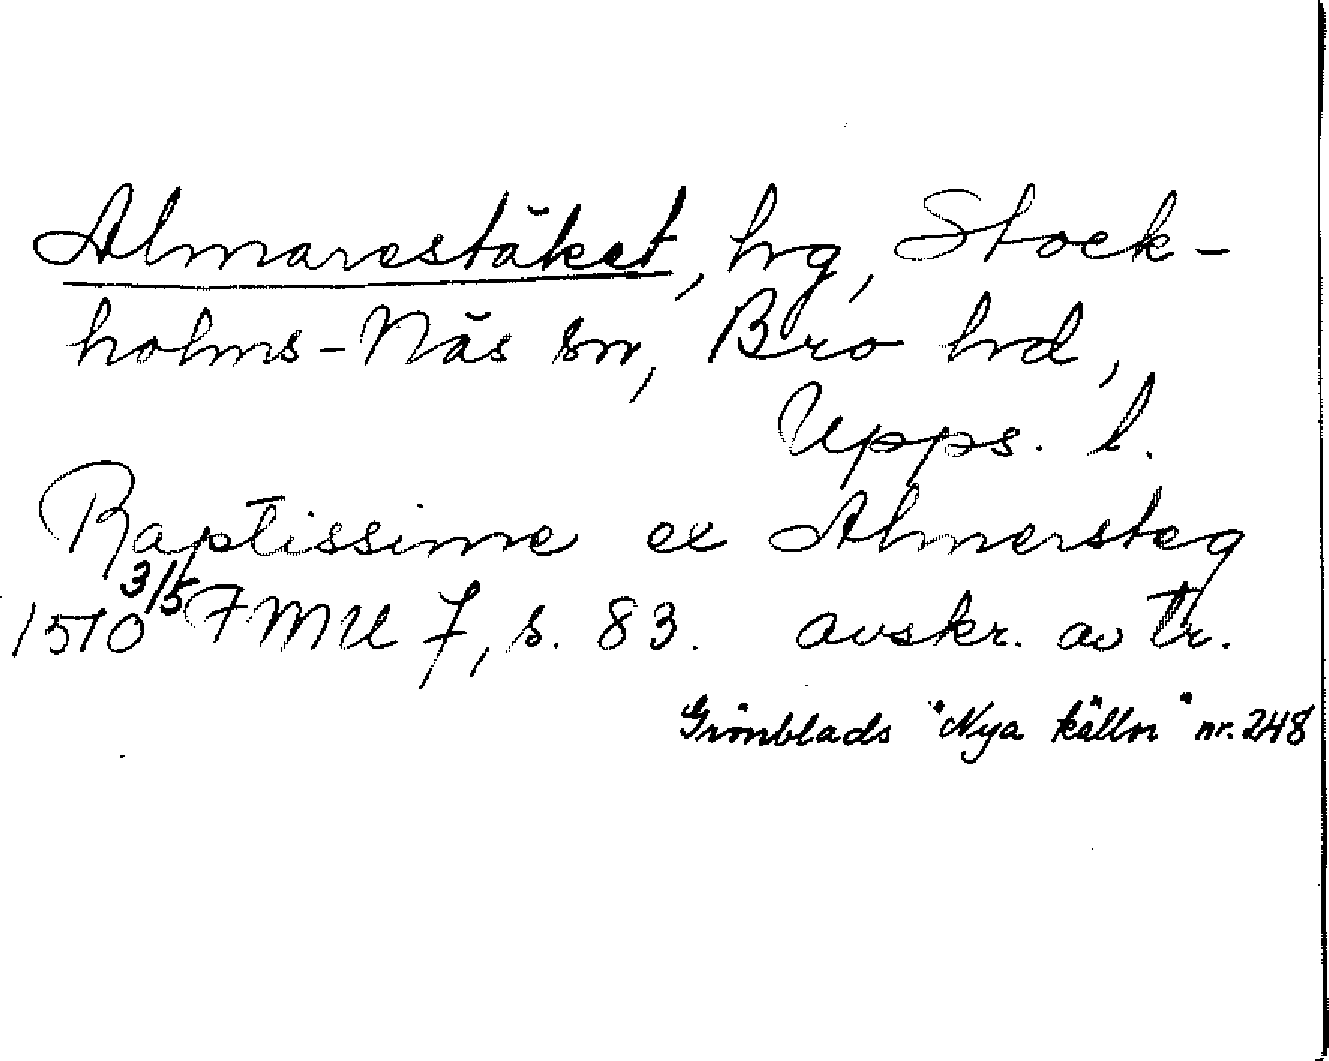 Almarestäket, hrg, Stock-
holms-Näs sn, Bro hrd,
Upps. l.
Raptissime ex Almersteg
1510 3/5 FMU 7, s. 83. avskr. av tr.
Grönblads "Nya källor" nr. 248